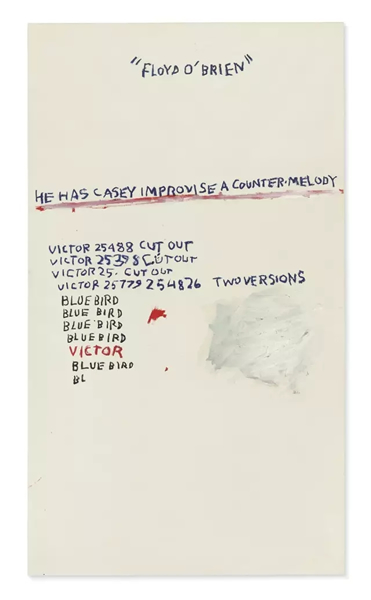 "FLOYD O'BRIEN"
HE HAS CASEY IMPROVISE A COUNTER-MELODY.
VICTOR 25488 CUT OUT
VICTOR 25398 CUTOUT
VICTOR 25. CUT OUT
VICTOR 25779 254826 TWO VERSIONS
BLUEBIRD
BLUE BIRD
BLUE BIRD
BLUEBIRD
VICTOR
BLUEBIRD
BL